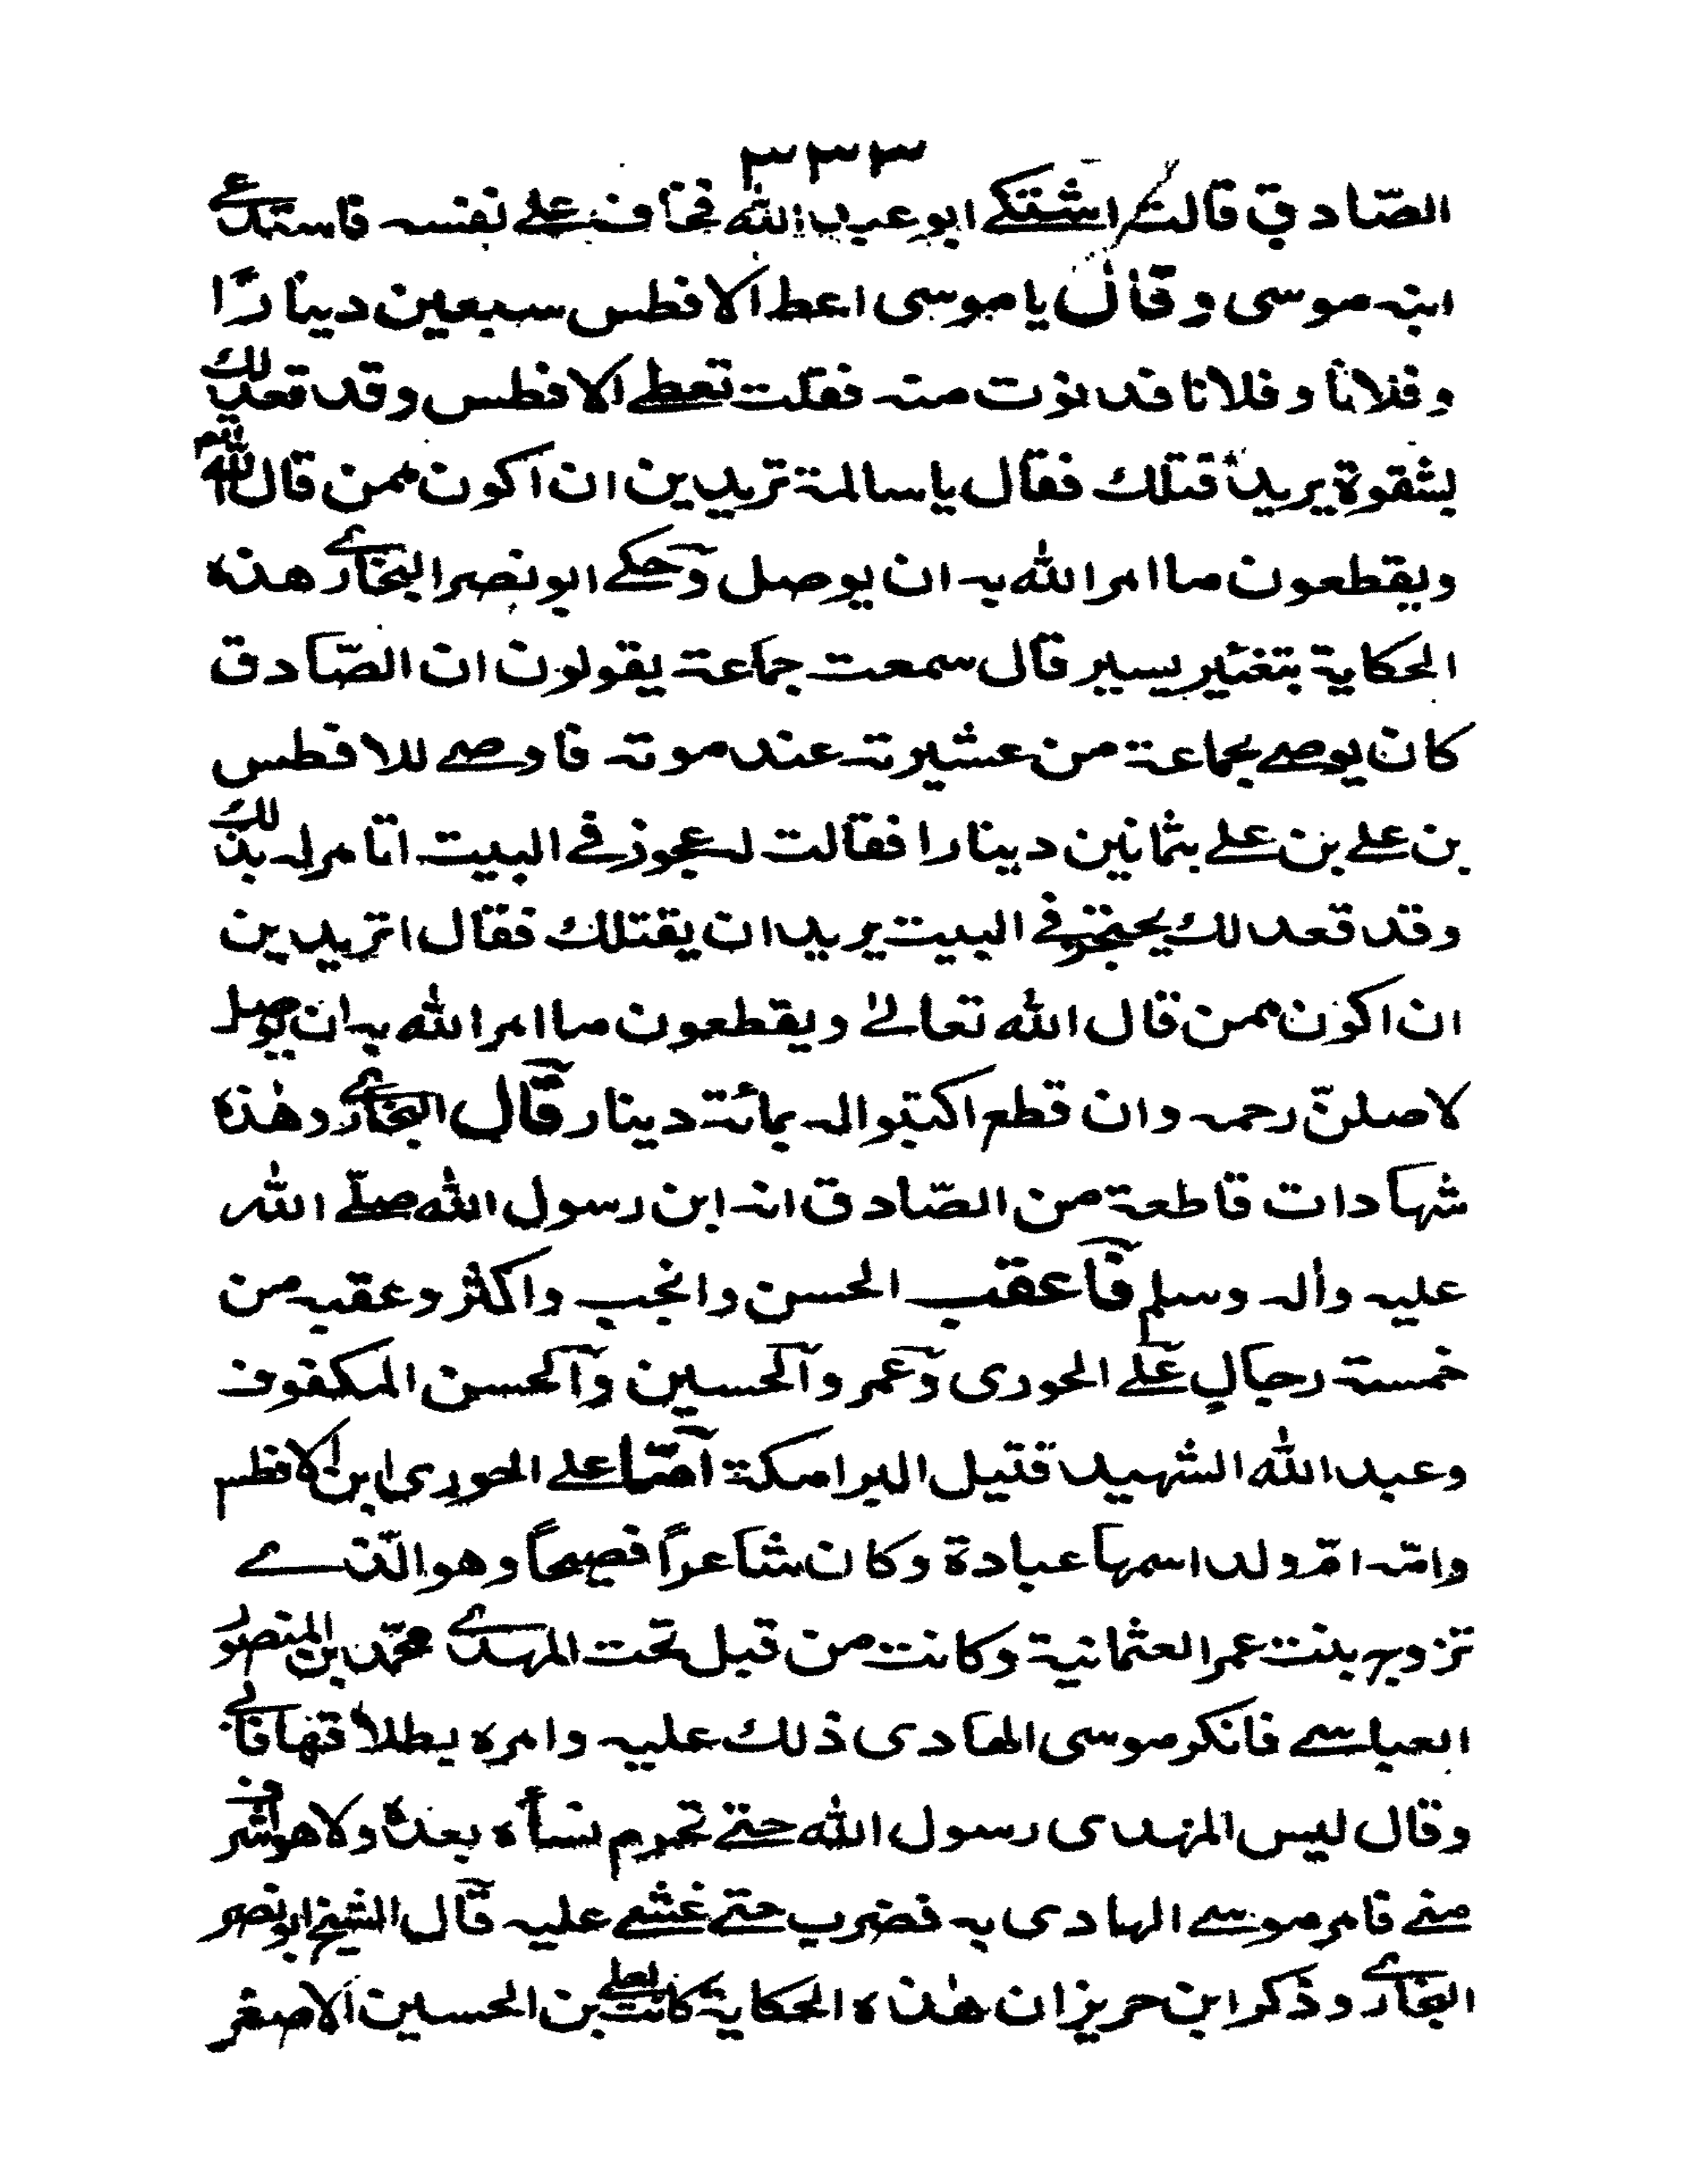 ٣٣٣
الصّادق قالت اشتكے ابو عبد الله فخاف علے نفسه فاستدعے
ابنه موسى وقال يا موسى اعط الافطس سبعين دينارًا
وفلانا وفلانا فدنوت منه فقلت تعطے الافطس وقد قعد لك
بشقوة يريد قتلك فقال يا سالمة تريدين ان اكون ممن قال الله تم
ويقطعون ما امر الله به ان يوصل وحكے ابو نصر البخارے هذه
الحكاية بتغئير يسير قال سمعت جماعة يقولون ان الصّادق
كان يوصے بجماعة من عشيرته عند موته فاوصے للافطس
بن علے بن علے بثمانين دينارا فقالت له عجوز فے البيت اتامر له بذلك
وقد قعد لك بخنجر فے البيت يريد ان يقتلك فقال اتريدين
ان اكون ممن قال الله تعالےٰ ويقطعون ما امر الله به ان يوصل
لاصلنّ رحمه وان قطع اكتبوا له بمائة دينار قال البخارے وهٰذه
شهادات قاطعة من الصّادق انه ابن رسول الله صلّے الله
عليه واٰله وسلم فاعقب الحسن وانجب واكثر وعقبه من
خمسة رجالٍ علے الحورى وعمر والحسين والحسن المكفوف
وعبد الله الشهيد قتيل البرامكة امّا علے الحورى ابن الافطس
وامّه امّ ولد اسمها عبادة وكان شاعراً فصيحاً وهو الّذے
تزوج بنت عمر العثمانية وكانت من قبل تحت المهدے محمّد بن المنصور
العباسے فانكر موسى الهادى ذلك عليه وامره بطلاقها فابے
وقال ليس المهدى رسول الله حتے تحرم نسأه بعده ولا هو اشرف
منے فامر موسے الهادى به فضرب حتے غشے عليه قال الشيخ ابو نصر
البخارے وذكر ابن حريز ان هٰذه الحكاية كانت لعلے بن الحسين الاصغر